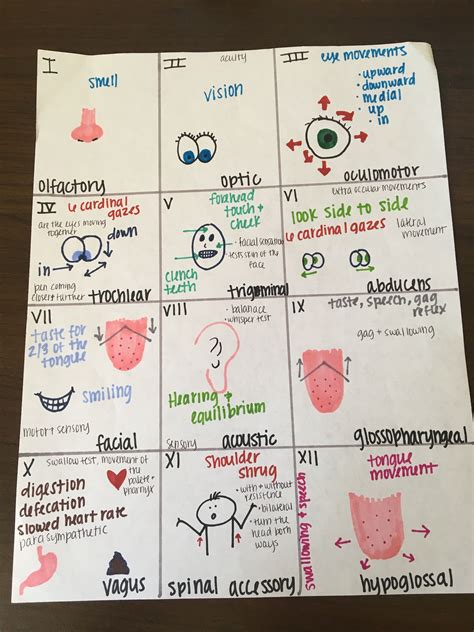 I
smell
olfactory
II
acuity
vision
optic
III
eye movements
• upward
• downward
• medial
• up
• in
oculomotor
IV
6 cardinal
gazes
are the eyes moving
together
down
in
pen coming
closer + farther
trochlear
V
forehead
touch +
cheek
• facial sensation
• tests skin of the
face
clench
teeth
trigeminal
VI
extra occular movements
look side to side
6 cardinal gazes
lateral
movement
abducens
VII
taste for
2/3 of the
tongue
smiling
motor + sensory
facial
VIII
• balanace
• whisper test
Hearing +
equilibrium
sensory
acoustic
IX
taste, speech, gag
reflex
gag + swallowing
glossopharyngeal
X
swallow test, movement of
the
palete +
digestion
defecation
slowed heart rate
parasympathetic
vagus
XI
shoulder
shrug
• with + without
resistence
• bilateral
• turn the
head both
ways
spinal accessory
XII
tongue
movement
swallowing + speech
hypoglossal